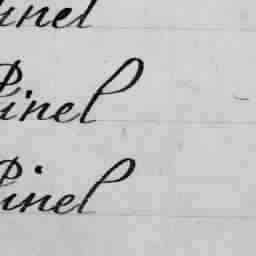 Pinel
Pinel
Pinel